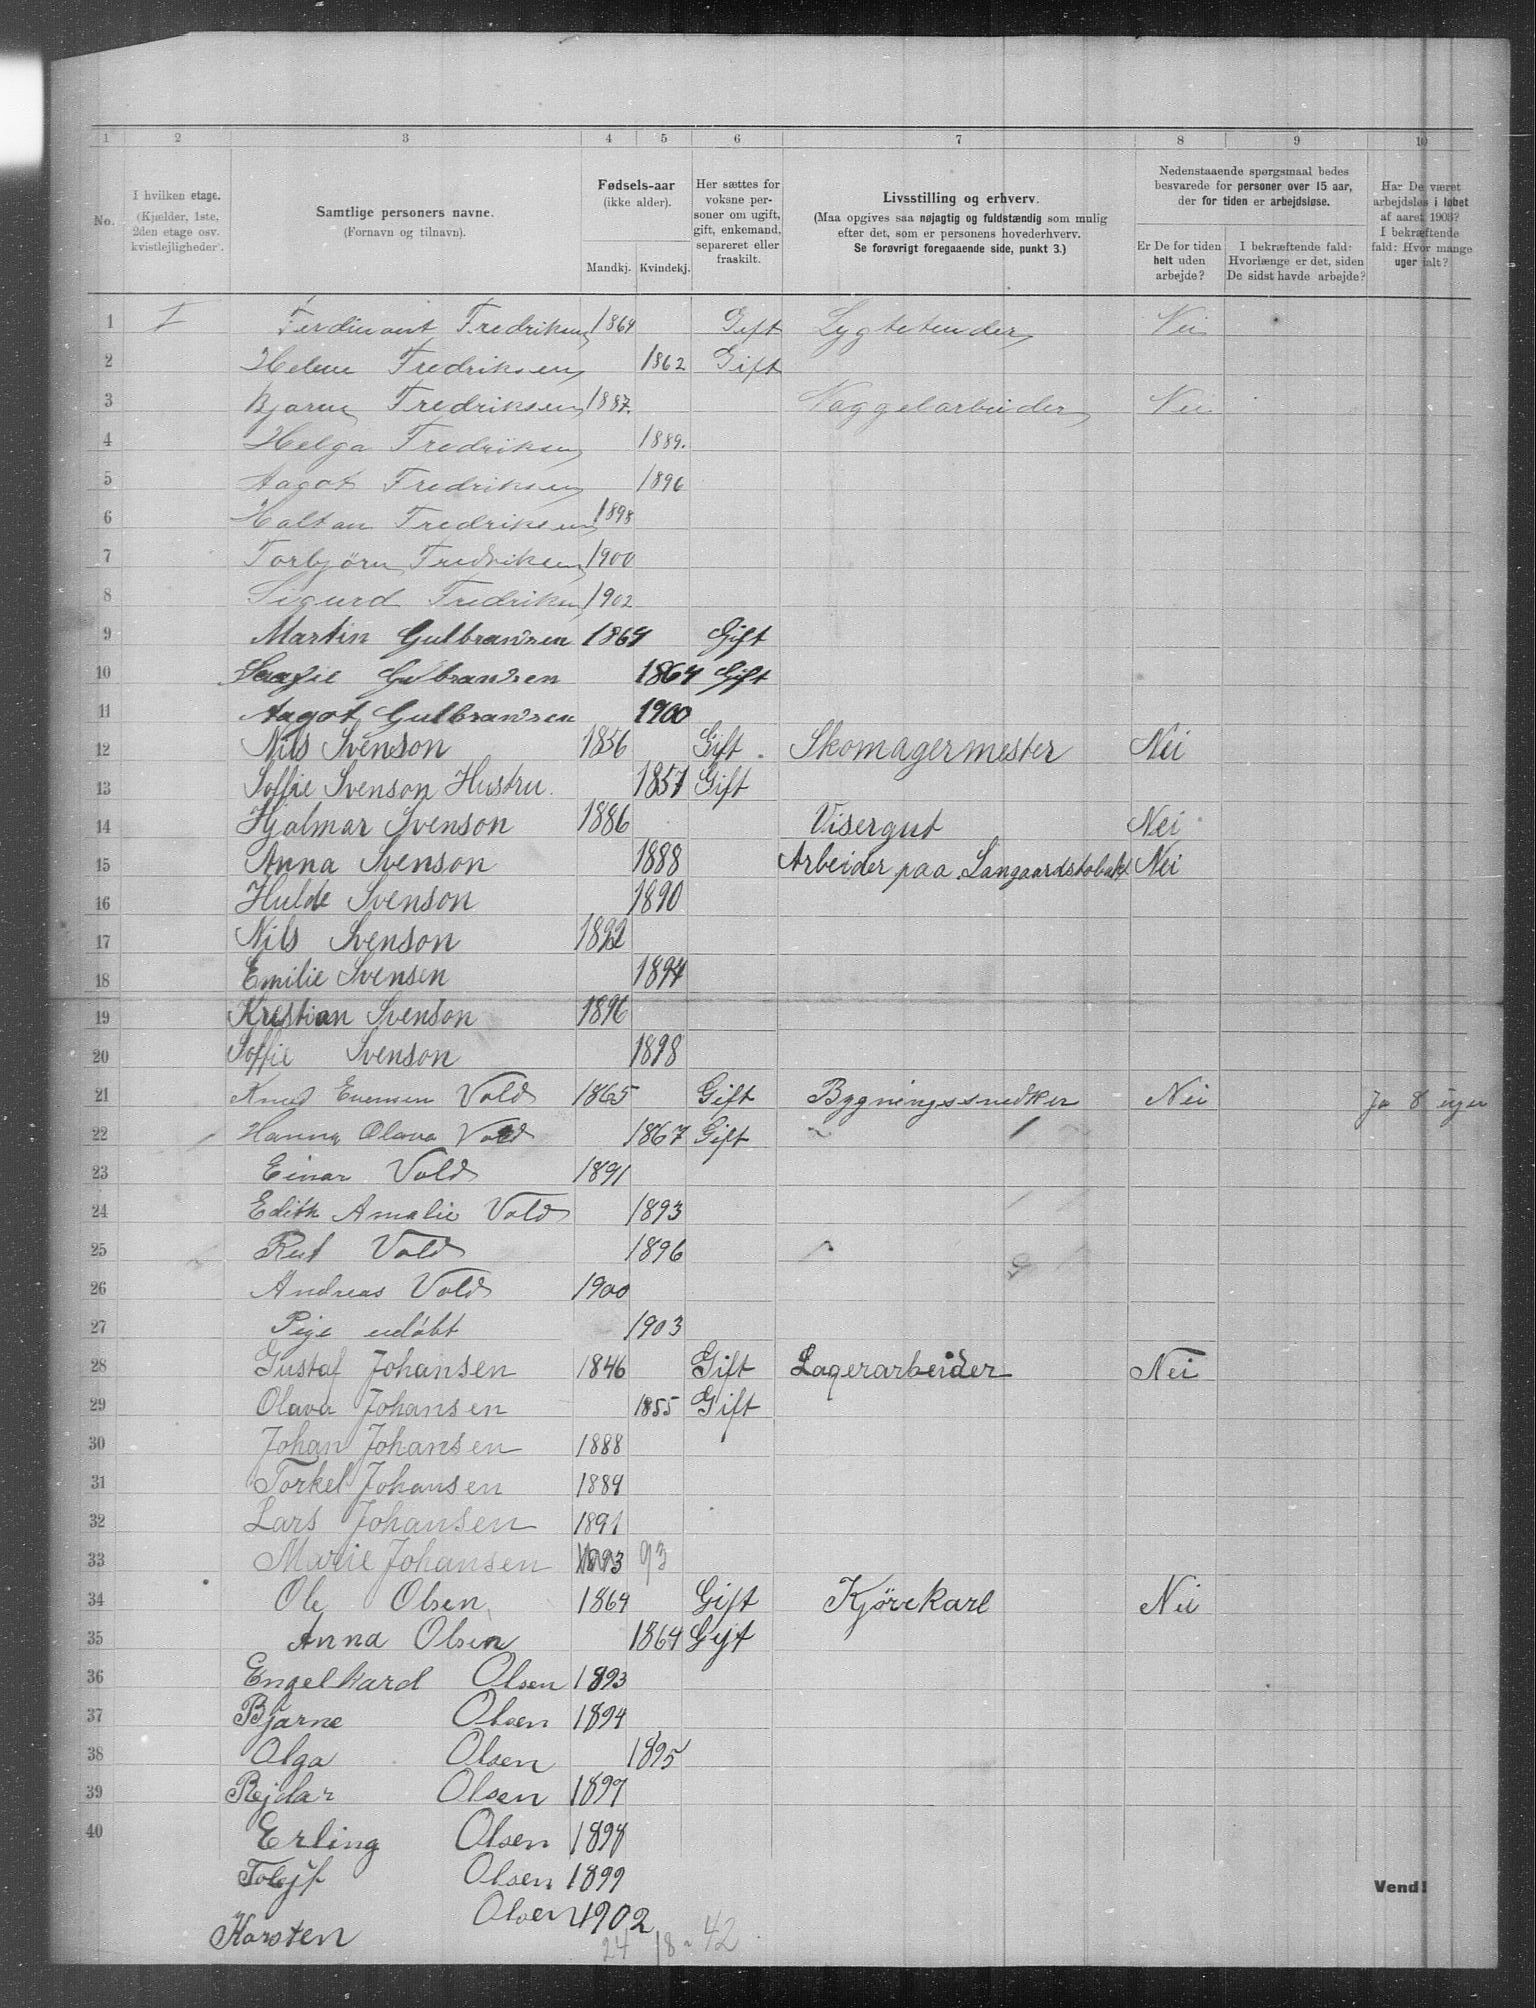 1 2 3 4 5 6 7 8 9 10
No.
I hvilken etage. (Kjælder, 1ste, 2den etage osv. kvistlejligheder.
Samtlige personers navne. (Fornavn og tilnavn).
Fødsels-aar (ikke alder).
Mandkj. Kvindekj.
Her sættes for voksne personer om ugift, gift, enkemand, separeret eller fraskilt.
Livsstilling og erhverv. (Maa opgives saa nøjagtig og fuldstændig som mulig efter det, som er personens hovederhverv. Se forøvrigt foregaaende side, punkt 3.)
Nedenstaaende spørgsmaal bedes besvarede for personer over 15 aar, der for tiden er arbejdsløse.
Er De for tiden helt uden arbejde?
I bekræftende fald: Hvorlænge er det, siden De sidst havde arbejde?
Har De været arbejdsløs i løbet af aaret 1903? I bekræftende fald: Hvor mange uger ialt?
1 I Ferdinant Fredriksen 1864 Gift Lygtetender Nei
2 Helene Fredriksen 1862 Gift
3 Bjarne Fredriksen 1887. Naggelarbeider Nei
4 Helga Fredriksen 1889.
5 Aagot Fredriksen 1896
6 Halfan Fredriksen 1898
7 Torbjørn Fredriksen 1900
8 Sigurd Fredriksen 1902
9 Martin Gulbransen 1864 Gift
10 Gulbransen 1864 Gift
11 Aagot Gulbransen 1900
12 Nils Svenson 1856 Gift. Skomagermester Nei
13 Soffie Svenson Hustru. 1851 Gift
14 Hjalmar Svenson 1886 Visergut Nei
15 Anna Svenson 1888 Arbeider paa Langaardstobak Nei
16 Hulde Svenson 1890
17 Nils Svenson 1892
18 Emilie Svensen 1894
19 Krestian Svenson 1896
20 Soffie Svenson 1898
21 Knud Evensen Vold 1865 Gift Bygningssnedker Nei Ja 8 uger
22 Hanna Olava Vold 1867 Gift
23 Einar Vold 1891
24 Edith Amalie Vold 1893
25 Rut Vold 1896
26 Andreas Vold 1900
27 Pige udøbt 1903
28 Gustaf Johansen 1846 Gift Lagerarbeider Nei
29 Olava Johansen 1855 Gift
30 Johan Johansen 1888
31 Torkel Johansen 1889
32 Lars Johansen 1891
33 Marie Johansen 1893 93
34 Ole Olsen 1864 Gift Kjørekarl Nei
35 Anna Olsen 1864 Gift
36 Engelhard Olsen 1893
37 Bjarne Olsen 1894
38 Olga Olsen 1895
39 Rejdar Olsen 1897
40 Erling Olsen 1898
Tolejf Olsen 1899
Karsten Olsen 1902
24 18 - 42
Vend!